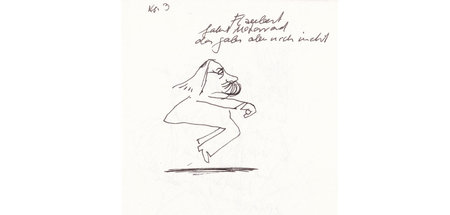 Nr. 3
Flaubert
fährt Motorrad
das gabs aber noch nicht